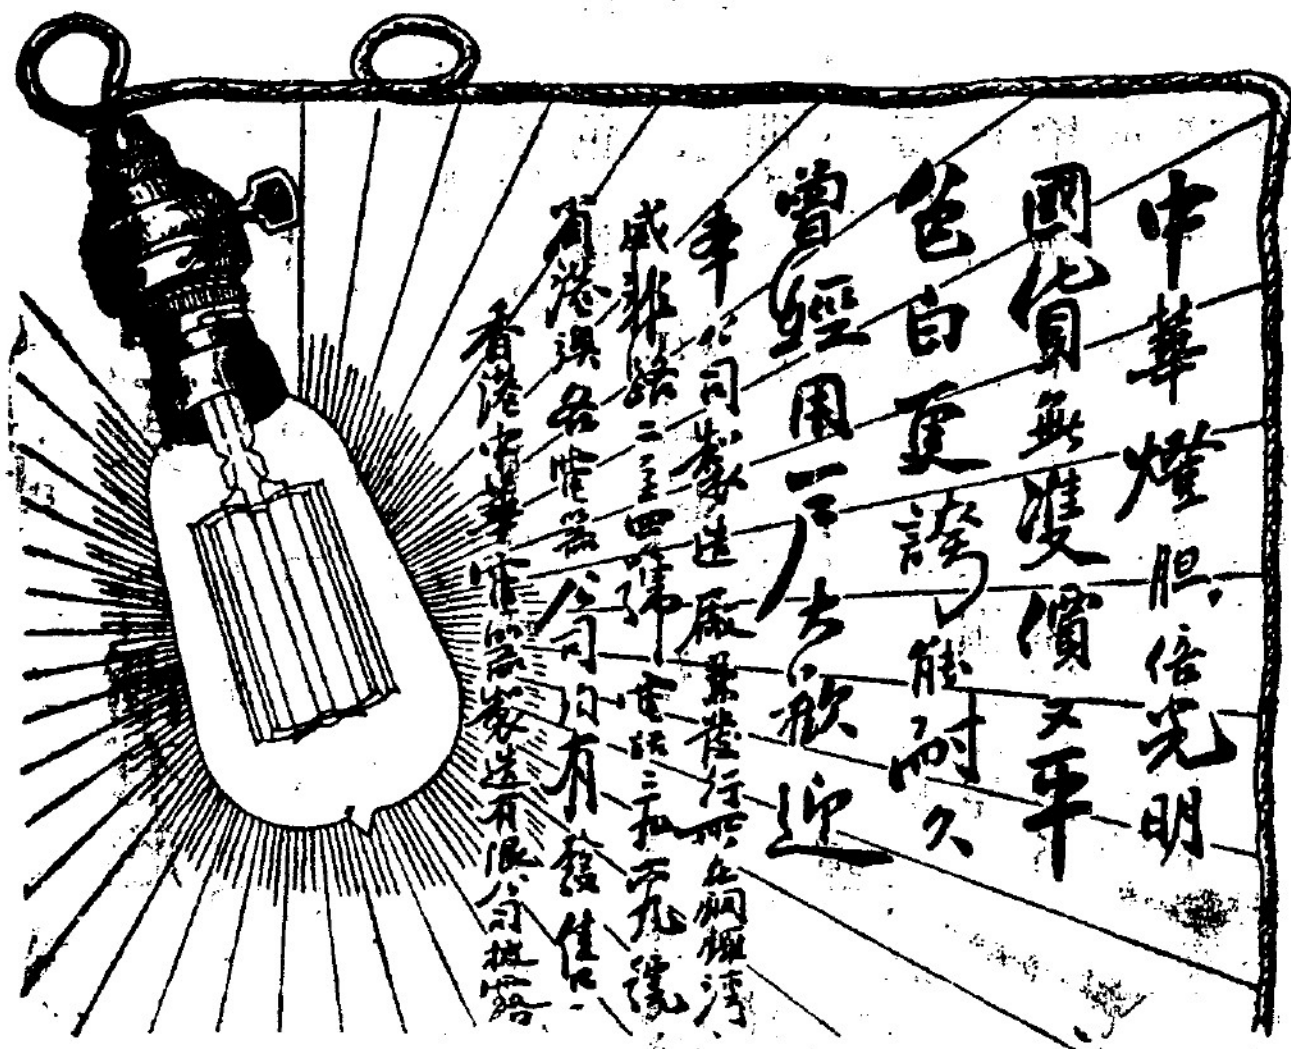 中華燈胆倍光明
國貨無雙價又平
色白更誇能耐久
曾經用戶大歡迎
本公司製造廠兼發行所在銅鑼灣
威非路二三四號電話二九號
省港澳各電器公司均有發售
香港中華電器製造有限公司披露